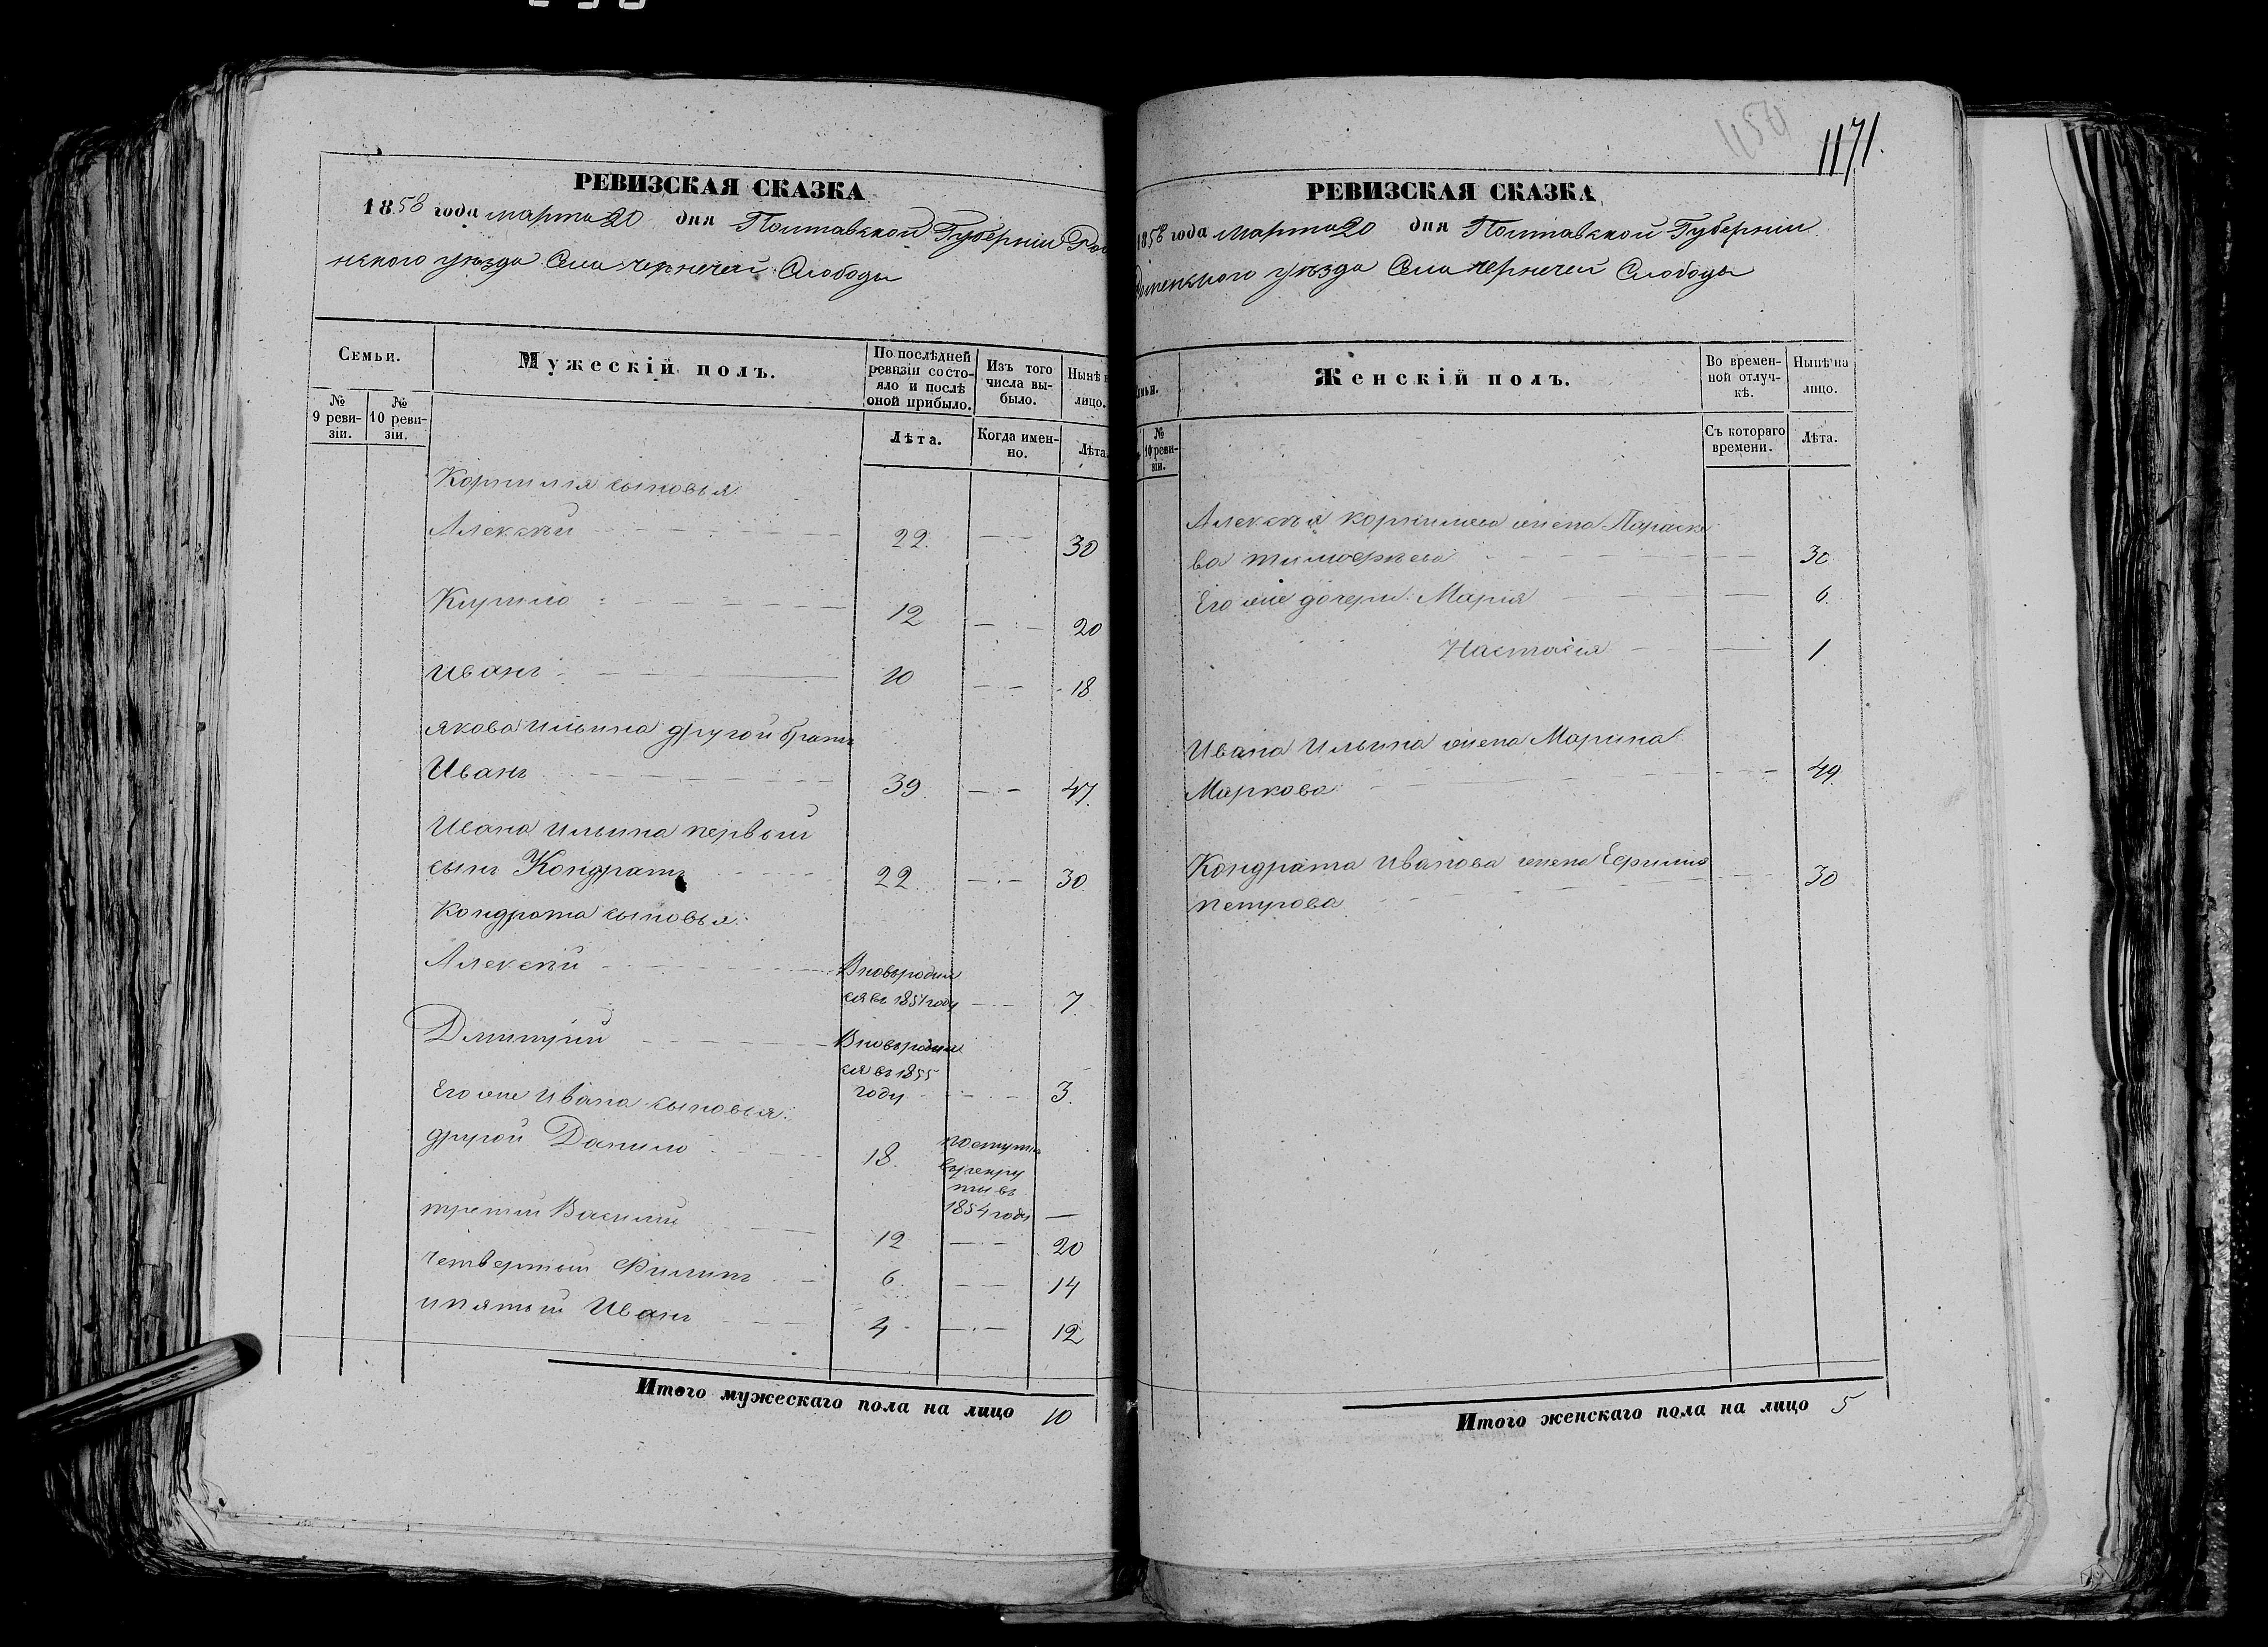 РЕВИЗСКАЯ СКАЗКА
1858 года марта 20 дня Полтавской Губерніи Ром
нского уѣзда Села Чернечей Слободы
Семьи.
Мужескій полъ.
По послѣдней
ревизіи состо-
яло и послѣ
оной прибыло.
Изъ того
числа вы-
было.
Нынѣ н
лицо.
№
9 реви-
зіи.
№
10 реви-
зіи.
Лѣта.
Когда имен-
но.
Лѣта.
Корнилія сыновья
Алексѣй 22. 30
Кирило 12 20
Иванъ 10 18
Якова Ильина другой братъ
Иванъ 39. 47.
Ивана Ильина первый
сынъ Кондратъ 22. 30
Кондрата сыновья:
Алексѣй Вновьродил
ся въ 1851 году 7.
Дмитрій Вновьродил
ся въ 1855
году 3.
Его же Ивана сыновья:
другой Данило 18. поступил
въ рекру
ты въ
1854 году —
третій Василій 12 20
четвертый Филипъ 6. 14
и пятый Иванъ 4 12
Итого мужескаго пола на лицо 10
1171.
РЕВИЗСКАЯ СКАЗКА
1858 года марта 20 дня Полтавской Губерніи
Роменского уѣзда Села Чернечей Слободы
емьи.
Женскій полъ.
Во времен-
ной отлуч-
кѣ.
Нынѣ на
лицо.
№
10 реви-
зіи.
Съ котораго
времени.
Лѣта.
Алексѣя Корнилова жена Параске
ва Тимофѣева 30
Его же дочери: Марія 6.
Настасія 1.
Ивана Ильина жена Марина
Маркова 49.
Кондрата Иванова жена Ефимия
Петрова 30
Итого женскаго пола на лицо 5